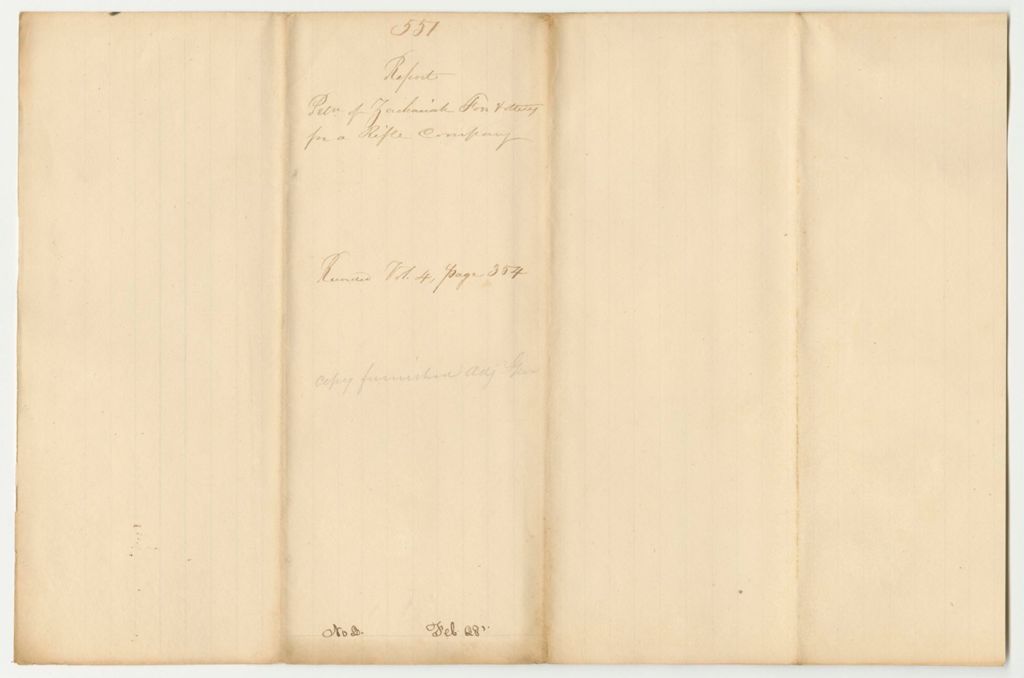 551
Report
Petn of Zachariah & others
for a Rifle Company
Vol. 4, page 354
copy furnished Adj Gen
No Feb 28